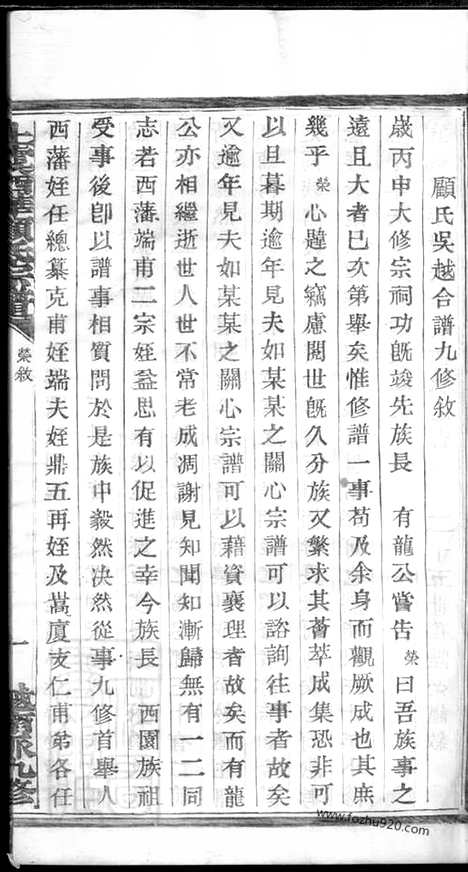 顧氏吳越合譜九修敘
歲丙申大修宗祠功旣竣先族長　有龍公嘗告榮曰吾族事之
遠且大者巳次第舉矣惟修譜一事苟及余身而觀厥成也其庶
幾乎榮心韙之竊慮閱世旣久分族又繁求其薈萃成集恐非可
以旦暮期逾年見夫如某某之關心宗譜可以諮詢往事者故矣
又逾年見夫如某某之關心宗譜可以藉資襄理者故矣而有龍
公亦相繼逝世人世不常老成凋謝見知聞知漸歸無有一二同
志若西藩端甫二宗姪益思有以促進之幸今族長　西園族祖
受事後卽以譜事相質問於是族中毅然決然從事九修首舉人
西藩姪任總纂克甫姪端夫姪鼎五再姪及嵩廈支仁甫弟各任
榮敘
一
www.fozhu920.com